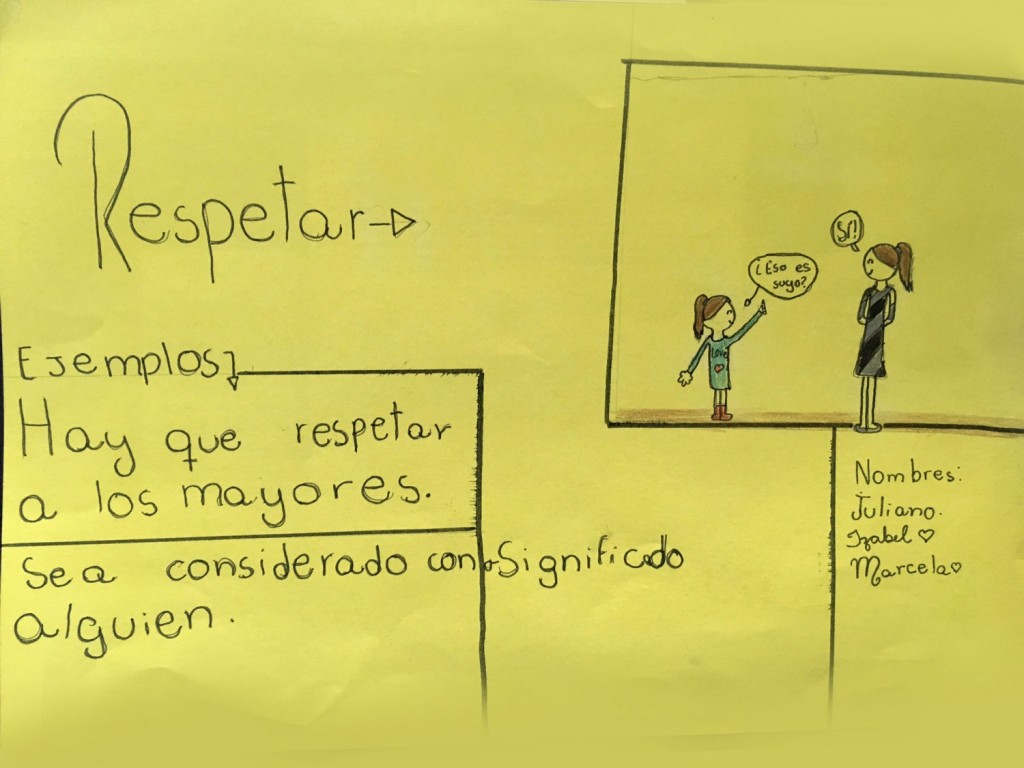 Respetar
Ejemplos
Hay que respetar
a los mayores.
Sea considerado con Significado
alguien.
¿Eso es
suyo?
Sí!
LOVE
Nombres:
Juliano.
Izabel ♡
Marcela ♡